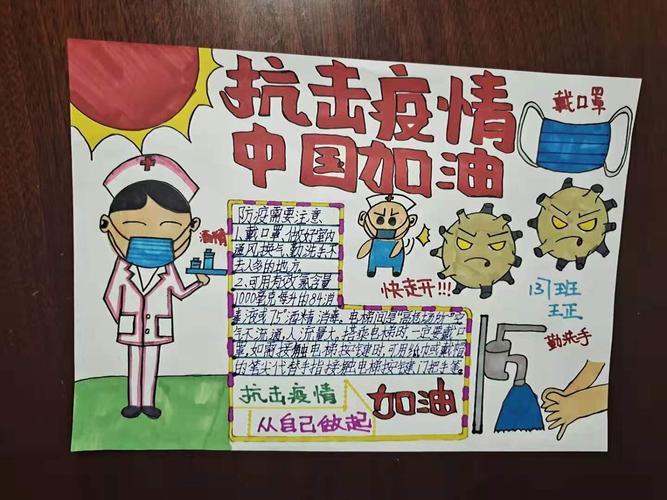 抗击疫情
中国加油
戴口罩
酒精
防疫需要注意
1、戴口罩、做好室内
通风换气、勤洗手、不
去人多的地方
2、可用有效氯含量
1000毫克每升的84消
毒液或75°酒精消毒。电梯间是密闭场所空
气不流通,人流量大,搭乘电梯时一定要戴口
罩,如需接触电梯按键时,可用纸巾或戴帽
的笔尖代替手指接触电梯按键
快走开!!!
137班
王正
勤洗手
抗击疫情
从自己做起
加油